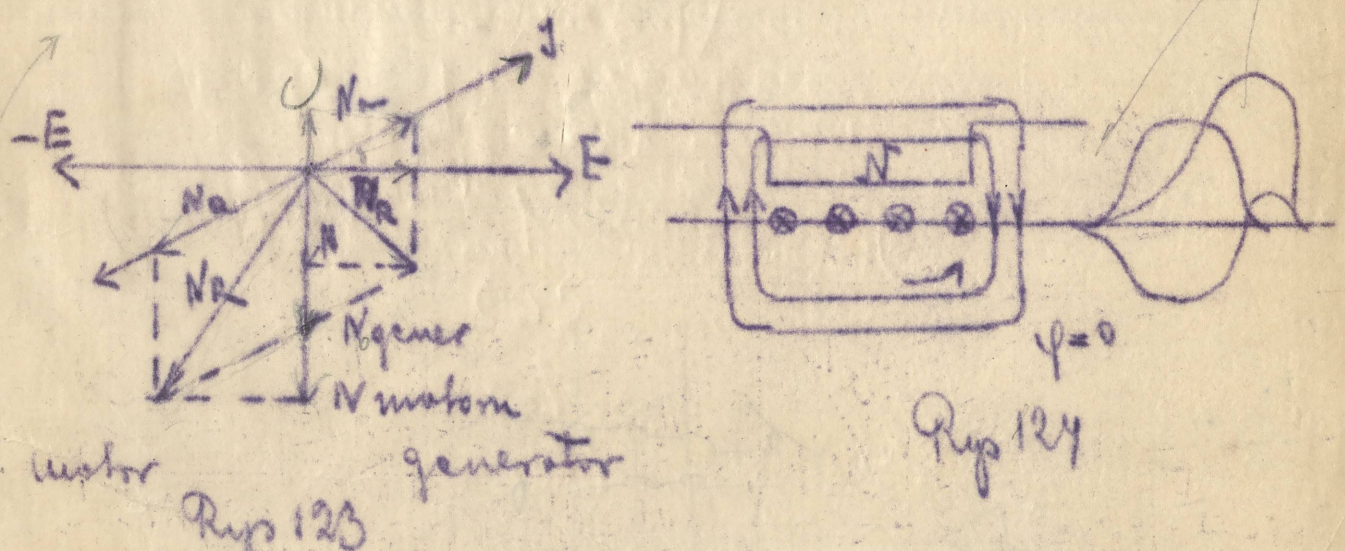 J
-E
E
N
N gener
N motoru
motor
generator
Rys 123
N
φ=0
Rys 124